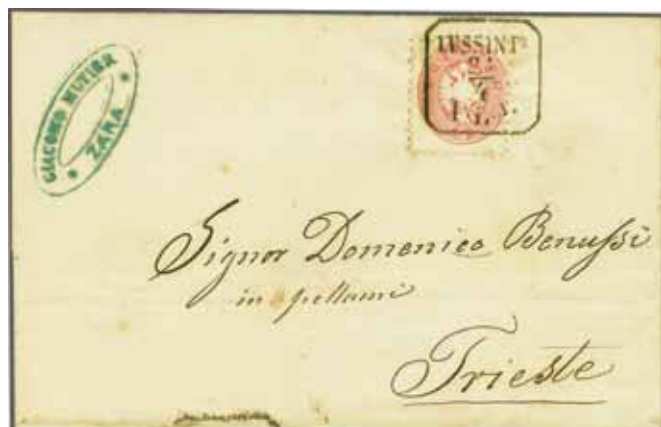 GIACOMO MUTIER
* ZARA *
LUSSINP.
Signor Domenico Benussi
in pellami
Trieste